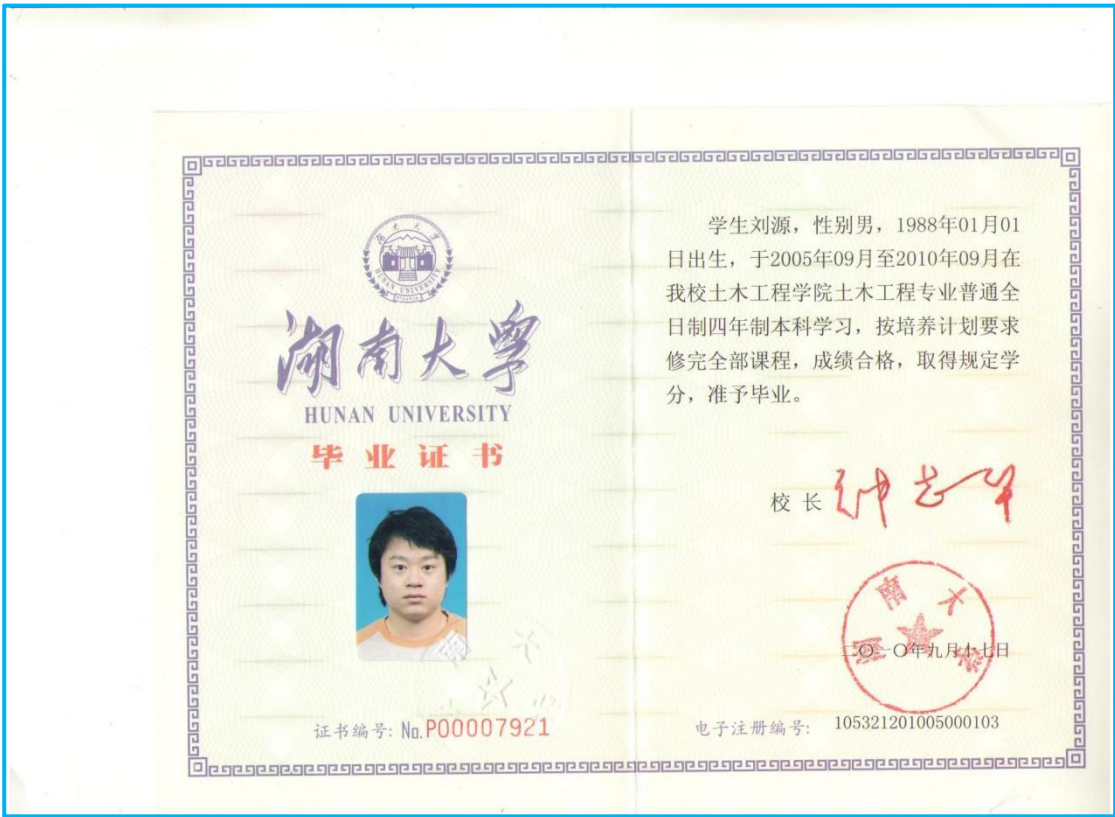 湖南大学
HUNAN UNIVERSITY
湖南大学
HUNAN UNIVERSITY
毕业证书
证书编号: No.P00007921
学生刘源，性别男，1988年01月01
日出生，于2005年09月至2010年09月在
我校土木工程学院土木工程专业普通全
日制四年制本科学习，按培养计划要求
修完全部课程，成绩合格，取得规定学
分，准予毕业。
校 长 钟志华
湖南大学
二〇一〇年九月十七日
电子注册编号: 105321201005000103